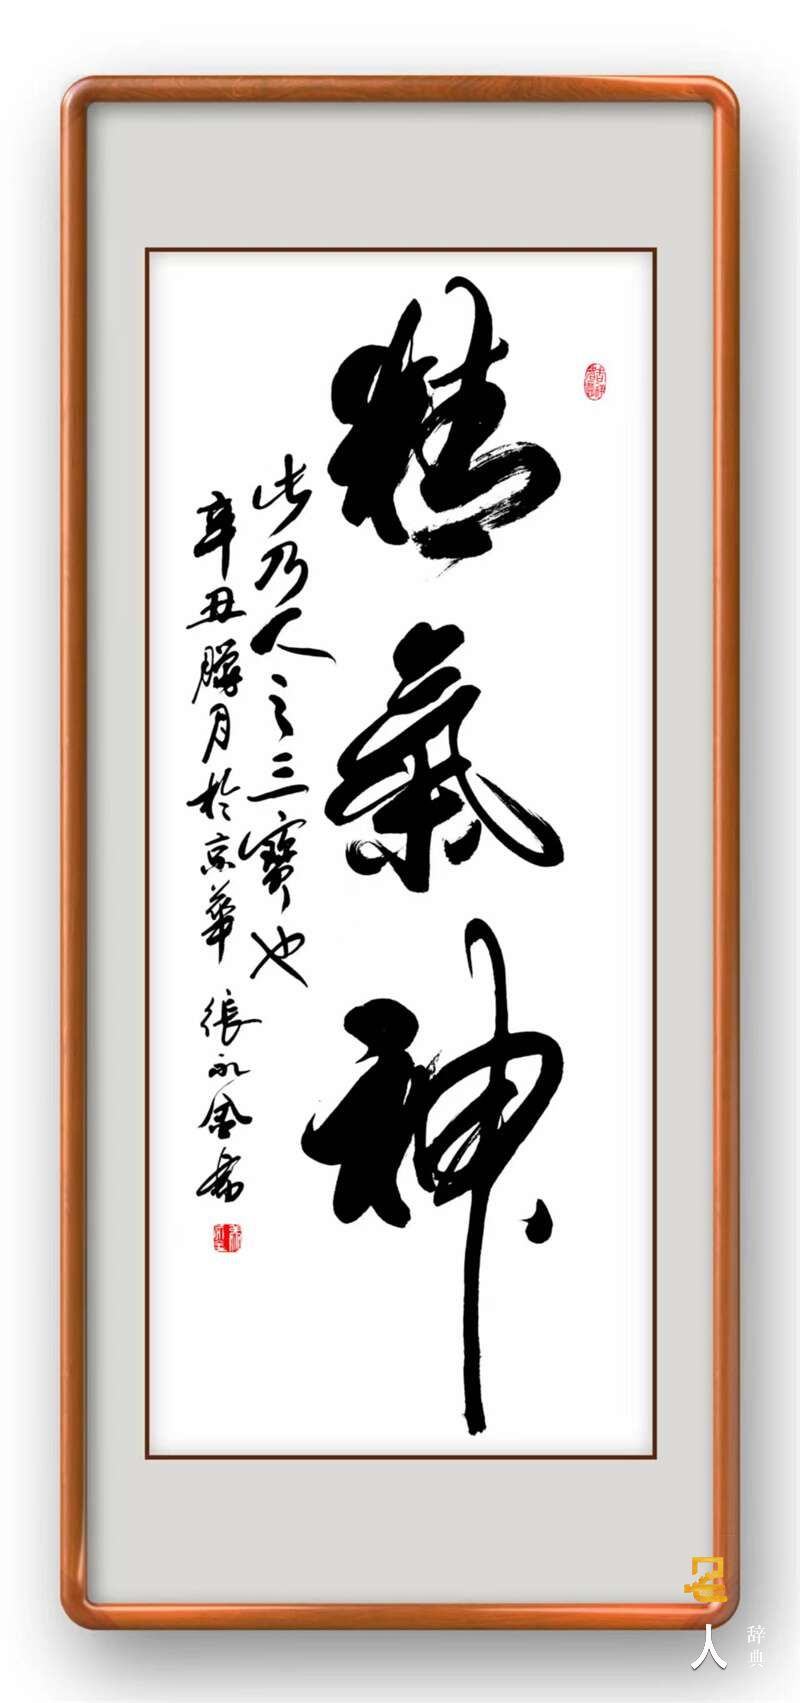 精氣神
此乃人之三寶也
辛丑臘月於京華 張永金書
名人
辞典